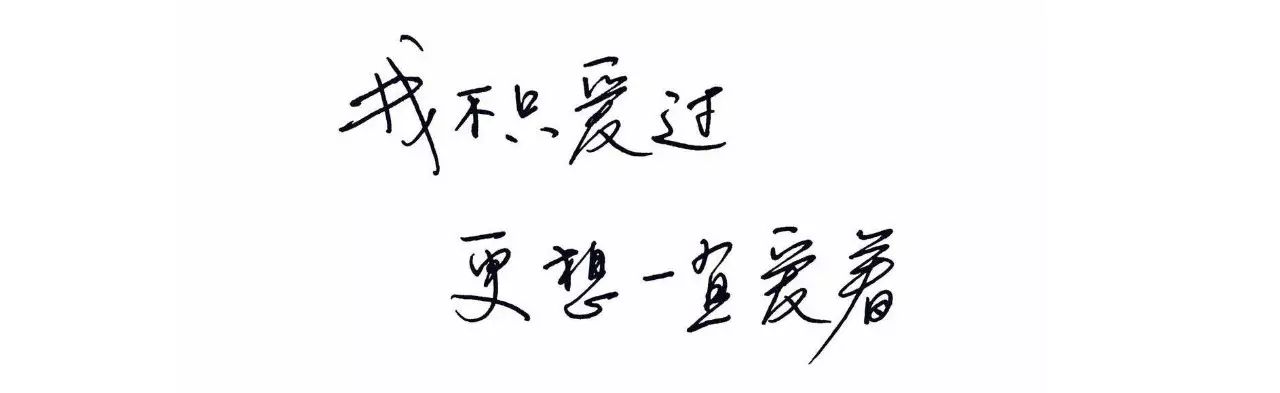 我不只爱过
更想一直爱着